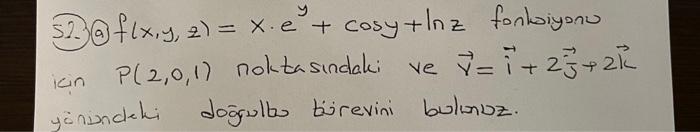 S2) a) f(x,y,z) = x.e^y + cosy + lnz fonksiyonu
için P(2,0,1) noktasındaki ve v⃗ = i⃗ + 2j⃗ + 2k⃗
yönündeki doğrultu türevini bulunuz.